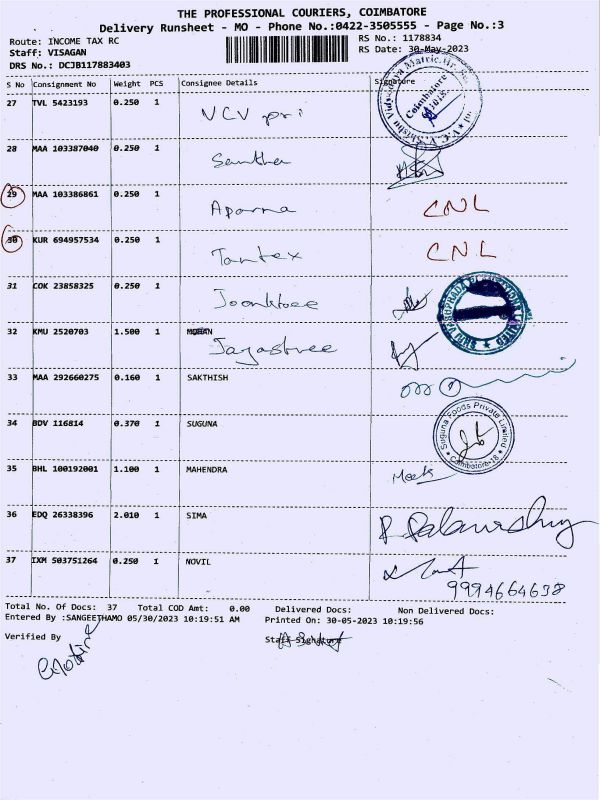 THE PROFESSIONAL COURIERS, COIMBATORE
Delivery Runsheet - MO - Phone No.:0422-3505555 - Page No.:3
Route: INCOME TAX RC
RS No.: 1178834
Staff: VISAGAN
RS Date: 30-May-2023
DRS No.: DCJB117883403
S No Consignment No Weight PCS Consignee Details Signature
27 TVL 5423193 0.250 1 VCV pri
Coimbatore
28 MAA 103387040 0.250 1 Santha
29 MAA 103386861 0.250 1 Aparna CNL
30 KUR 694957534 0.250 1 Tantex CNL
31 COK 23858325 0.250 1
32 KMU 2520703 1.500 1 MOHAN
Jayashree
33 MAA 292660275 0.160 1 SAKTHISH
34 BDV 116814 0.370 1 SUGUNA
Suguna Foods Private Limited
Coimbatore-18
35 BHL 100192001 1.100 1 MAHENDRA
36 EDQ 26338396 2.010 1 SIMA
37 IXM 503751264 0.250 1 NOVIL
9994664638
Total No. Of Docs: 37 Total COD Amt: 0.00 Delivered Docs: Non Delivered Docs:
Entered By :SANGEETHAMO 05/30/2023 10:19:51 AM Printed On: 30-05-2023 10:19:56
Verified By Staff Signature